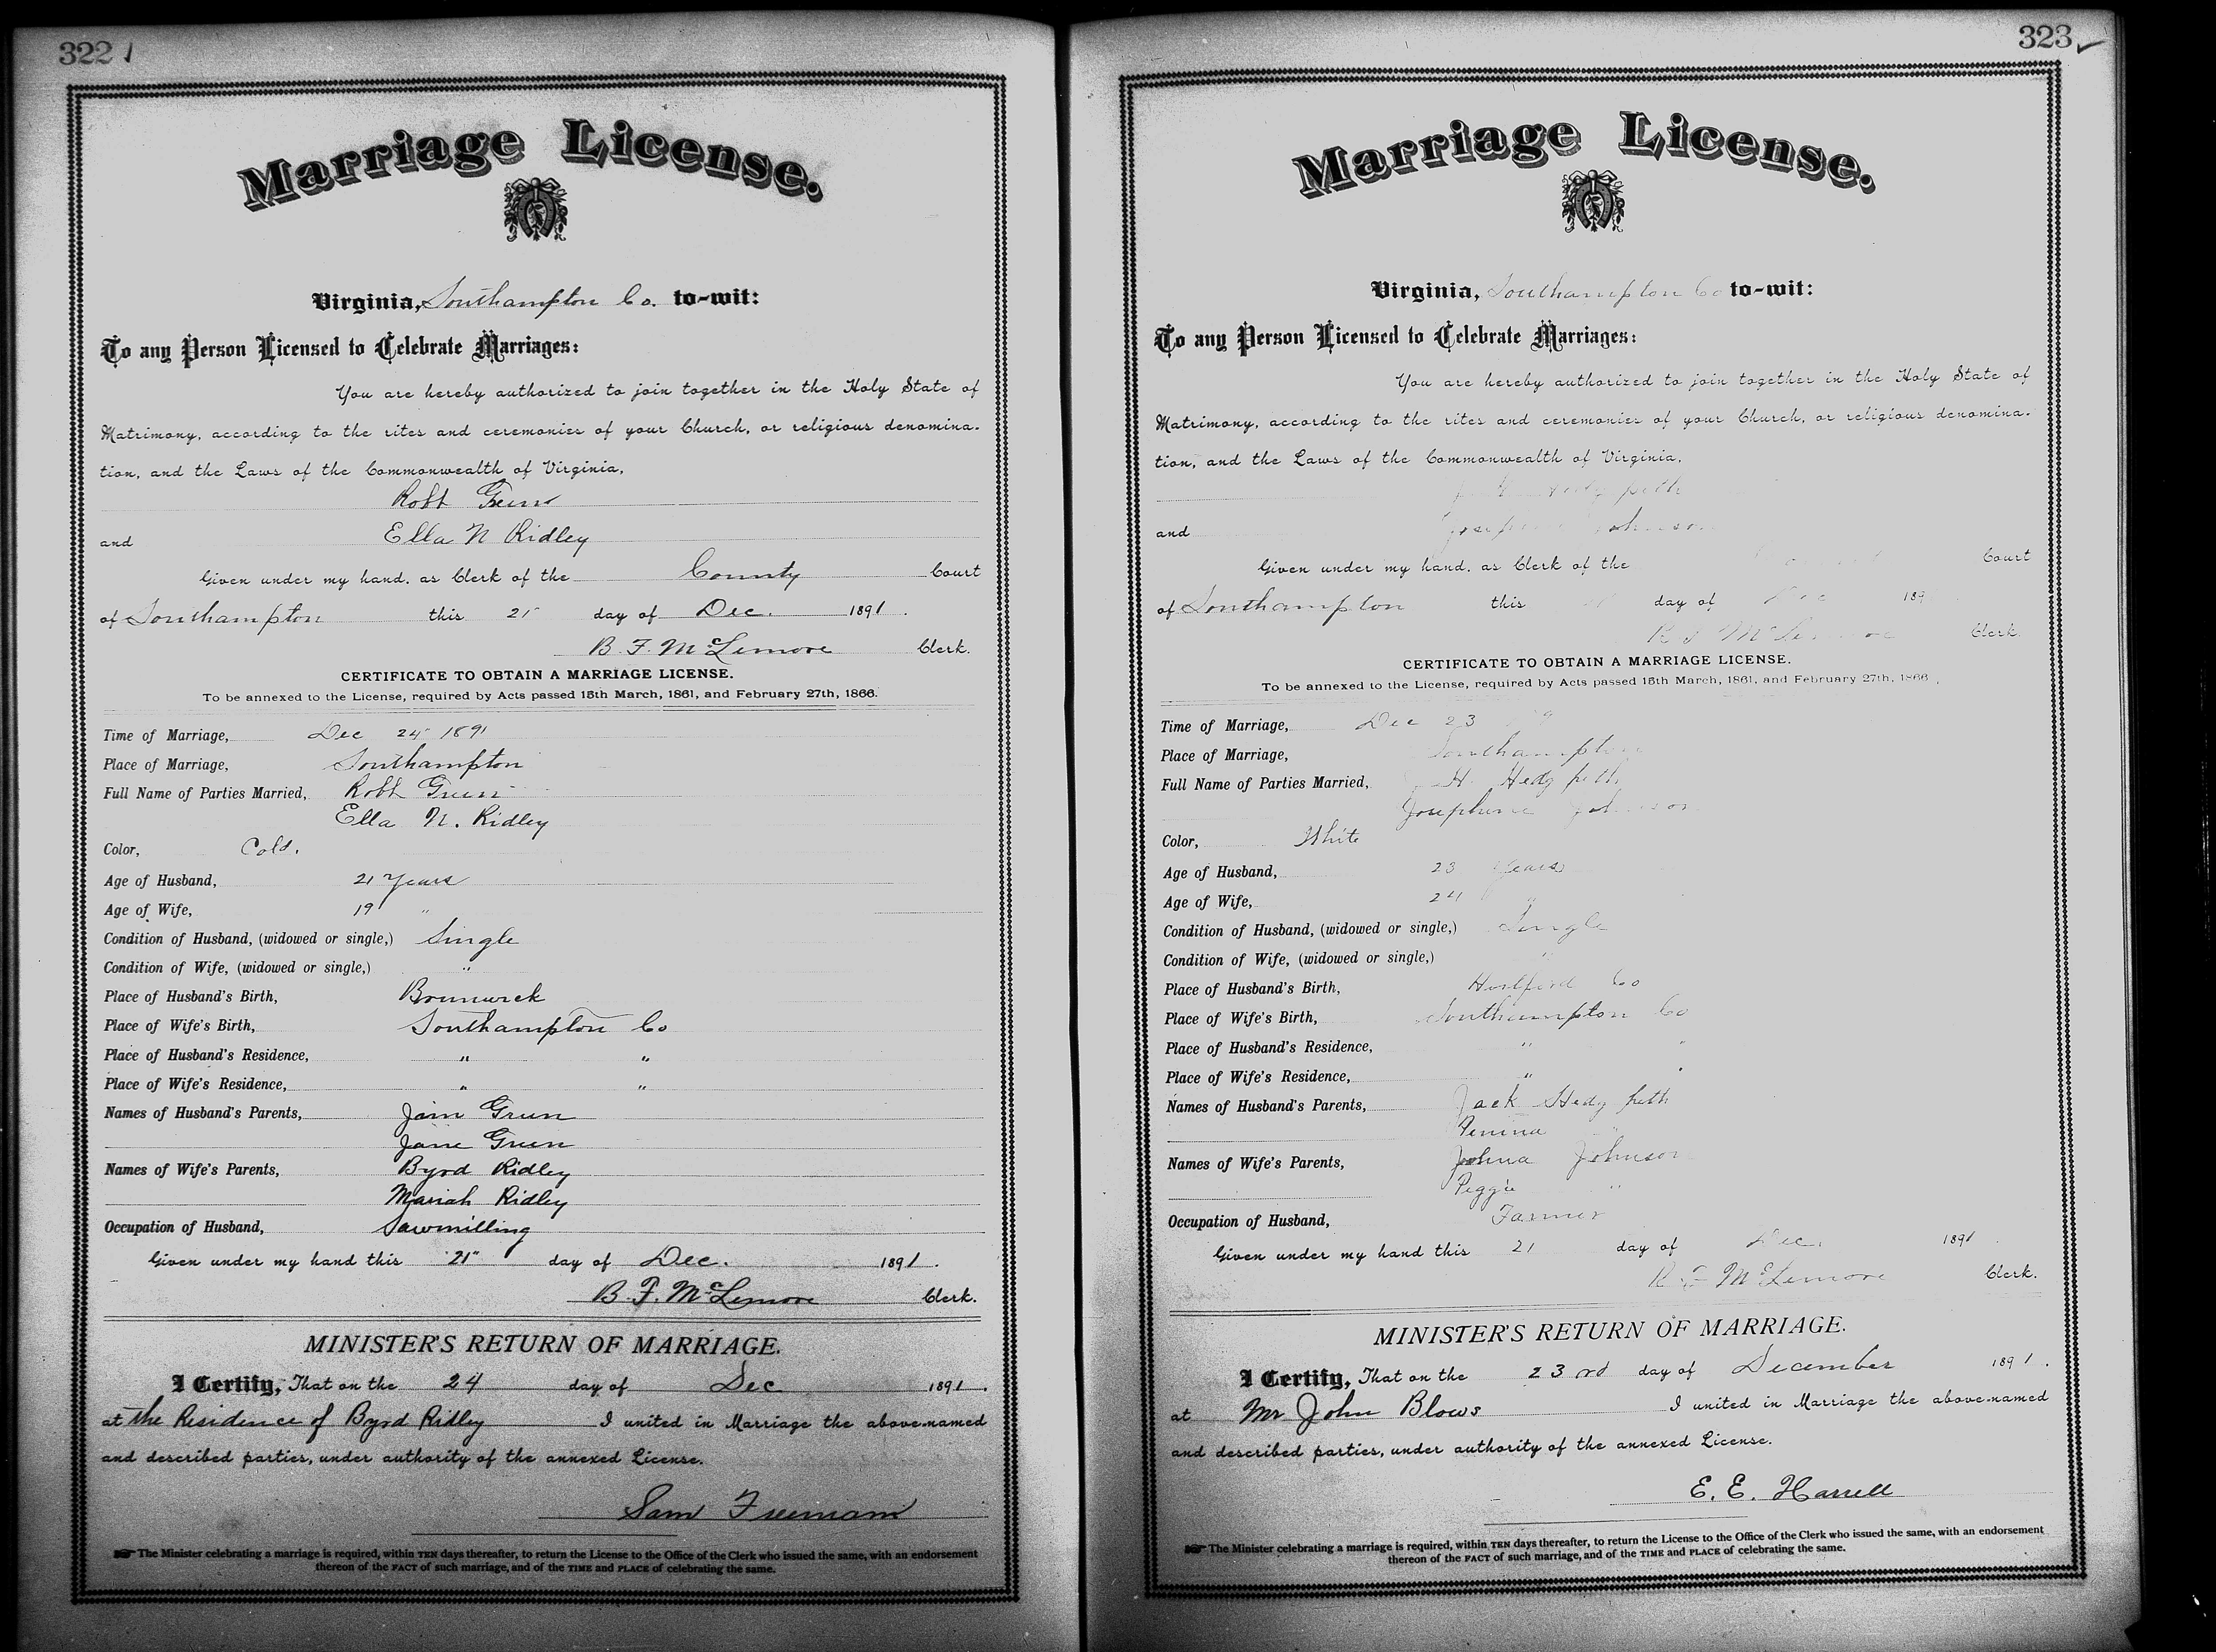 322
Marriage License.
Virginia, Southampton Co. to-wit:
To any Person Licensed to Celebrate Marriages:
You are hereby authorized to join together in the Holy State of
Matrimony, according to the rites and ceremonies of your Church, or religious denomina-
tion, and the Laws of the Commonwealth of Virginia,
Robt Green
and Ella N Ridley
Given under my hand, as Clerk of the County Court
of Southampton this 21 day of Dec. 1891.
B. F. McLemore Clerk.
CERTIFICATE TO OBTAIN A MARRIAGE LICENSE.
To be annexed to the License, required by Acts passed 15th March, 1861, and February 27th, 1866.
Time of Marriage, Dec 24" 1891
Place of Marriage, Southampton
Full Name of Parties Married, Robt Green
Ella N. Ridley
Color, Cold.
Age of Husband, 21 Years
Age of Wife, 19 "
Condition of Husband, (widowed or single,) Single
Condition of Wife, (widowed or single,) "
Place of Husband's Birth, Brunswick
Place of Wife's Birth, Southampton Co
Place of Husband's Residence, " "
Place of Wife's Residence, " "
Names of Husband's Parents, Jam Green
Jane Green
Names of Wife's Parents, Byrd Ridley
Mariah Ridley
Occupation of Husband, Sawmilling
Given under my hand this 21" day of Dec. 1891.
B. F. McLemore Clerk.
MINISTER'S RETURN OF MARRIAGE.
I Certify, That on the 24 day of Dec 1891.
at the Residence of Byrd Ridley I united in Marriage the above-named
and described parties, under authority of the annexed License.
Sam Freeman
The Minister celebrating a marriage is required, within TEN days thereafter, to return the License to the Office of the Clerk who issued the same, with an endorsement
thereon of the FACT of such marriage, and of the TIME and PLACE of celebrating the same.
323
Marriage License.
Virginia, Southampton Co to-wit:
To any Person Licensed to Celebrate Marriages:
You are hereby authorized to join together in the Holy State of
Matrimony, according to the rites and ceremonies of your Church, or religious denomina-
tion, and the Laws of the Commonwealth of Virginia,
Hedgpeth
and Josephine Johnson
Given under my hand, as Clerk of the Court
of Southampton this day of Dec 189
McLemore Clerk.
CERTIFICATE TO OBTAIN A MARRIAGE LICENSE.
To be annexed to the License, required by Acts passed 15th March, 1861, and February 27th, 1866.
Time of Marriage, Dec 23
Place of Marriage, Southampton
Full Name of Parties Married, H. Hedgpeth
Josephine Johnson
Color, White
Age of Husband, 23 Years
Age of Wife, 24 "
Condition of Husband, (widowed or single,) Single
Condition of Wife, (widowed or single,) "
Place of Husband's Birth, Hertford Co
Place of Wife's Birth, Southampton Co
Place of Husband's Residence, " "
Place of Wife's Residence, " "
Names of Husband's Parents, Jack Hedgpeth
Penina "
Names of Wife's Parents, Johna Johnson
Peggie "
Occupation of Husband, Farmer
Given under my hand this 21 day of Dec. 1891.
McLemore Clerk.
MINISTER'S RETURN OF MARRIAGE.
I Certify, That on the 23rd day of December 1891.
at Mr John Blows I united in Marriage the above-named
and described parties, under authority of the annexed License.
E. E. Harrell
The Minister celebrating a marriage is required, within TEN days thereafter, to return the License to the Office of the Clerk who issued the same, with an endorsement
thereon of the FACT of such marriage, and of the TIME and PLACE of celebrating the same.